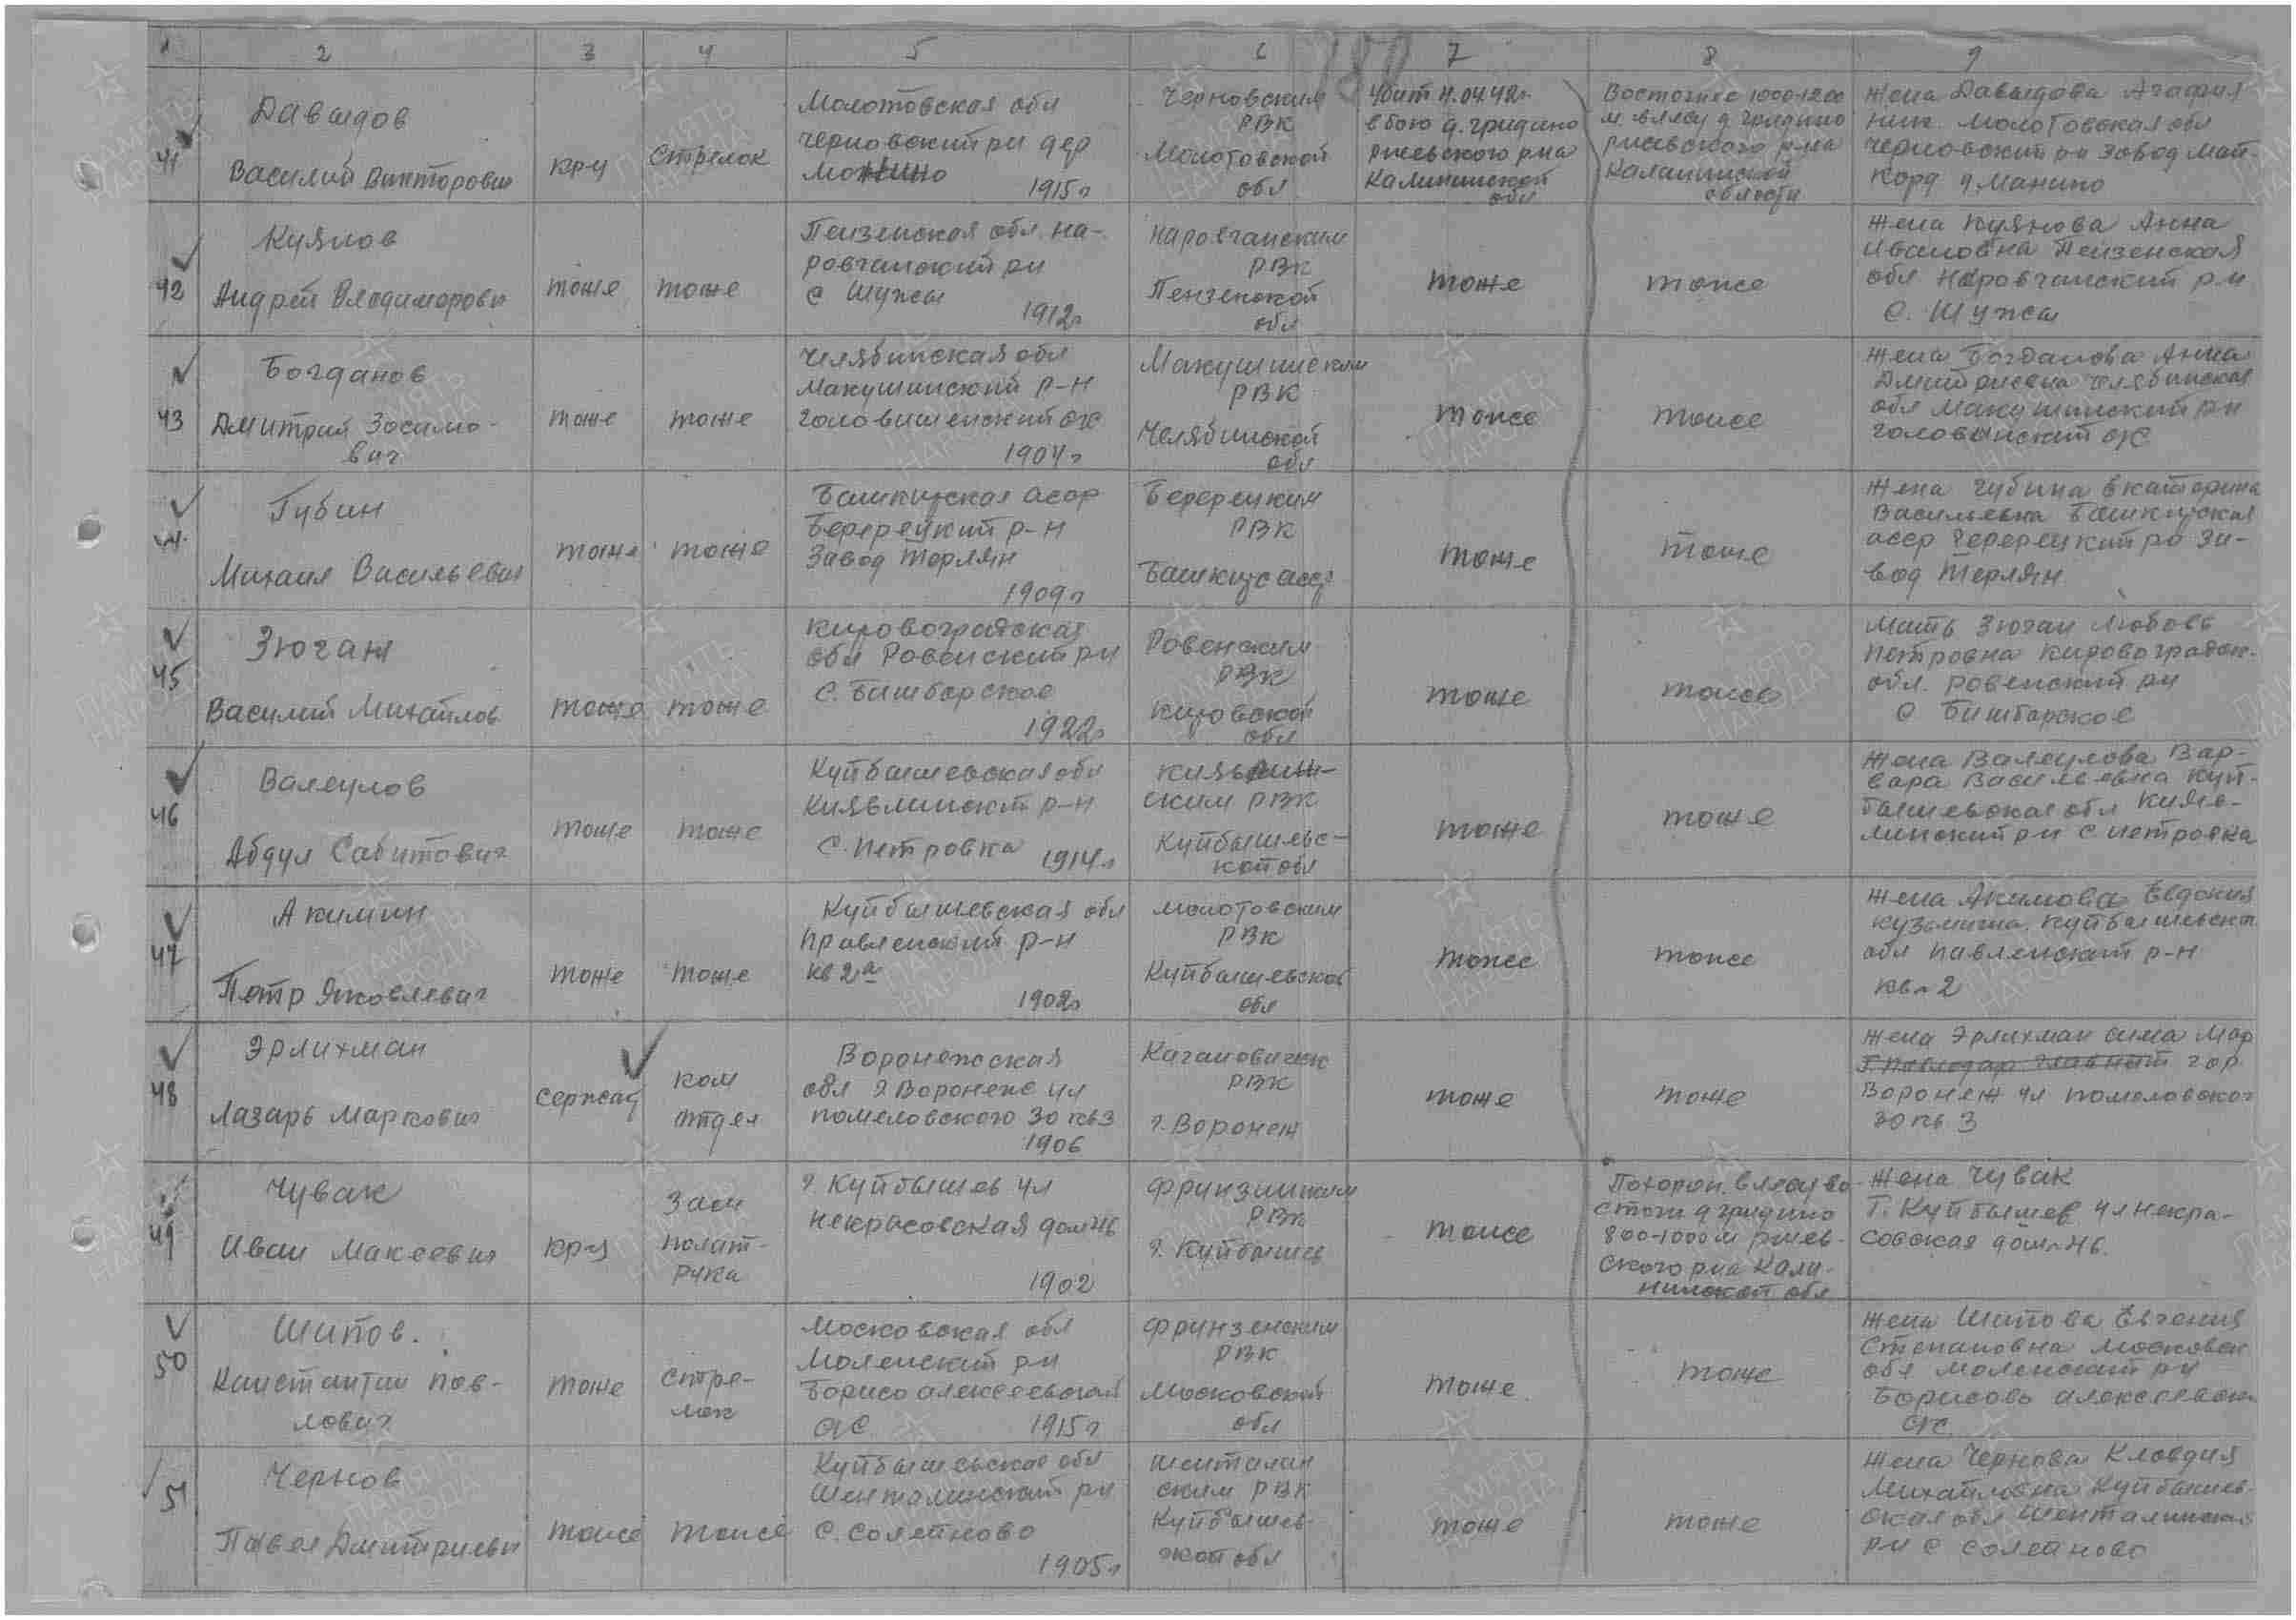 1 2 3 4 5 6 7 8 9
41
Давыдов
Василий Викторович
кру
Стрелок
Молотовская обл
Черновский рн дер
1915г
Черновским
РВК
Молотовской
обл
Убит 4.04.42г.
в бою д. Гридино
Ржевского рна
Калининской
обл
Восточнее 1000-1200
м. в лесу д Гридино
Ржевского р-на
Калининской
области
Жена Давыдова Агафия
Ник. Молотовская обл
Черновский рн Завод Май-
корд д. Манино
42
Куянов
Андрей Владимирови
тоже
тоже
Пензенская обл. На-
ровчатский рн
с Шужы
1912г
Наровчатским
РВК
Пензенской
обл
тоже
тоже
Жена Куянова Анна
Ивановна Пензенская
обл Наровчатский рн
с. Шужы
43
Богданов
Дмитрий Зосимо-
вич
тоже
тоже
Челябинская обл
Макушинский р-н
1904г
Макушинским
РВК
Челябинской
обл
тоже
тоже
Жена Богданова Анна
Дмитриевна Челябинская
обл Макушинский рн
Головинский с/с
44
Губин
Михаил Васильевич
тоже
тоже
Башкирская асср
Беререцкий р-н
Завод Терлян
1909г
Беререцким
РВК
Башкир асср
тоже
тоже
Жена Губина Екатерина
Васильевна Башкирская
асср
вод Терлян
45
Зюган
Василий Михайлов
тоже
тоже
Кировоградская
обл Ровенский рн
с. Башборское
1922г
Ровенским
РВК
Кировской
обл
тоже
тоже
Мать Зюган Любовь
Петровна Кировоградск.
обл. Ровенский рн
с Бишбарское
46
Валеулов
Абдул Сабитович
тоже
тоже
Куйбышевская обл
Киявлинский р-н
с. Петровка 1914г
ским РВК
Куйбышевс-
кой обл
тоже
тоже
Жена Валеулова Вар-
вара Васильевна Куй-
бышевская обл Кияв-
линский рн с Петровка
47
Акимин
Петр Яковлевич
тоже
тоже
Куйбышевская обл
Правленский р-н
кв 2а
1902г
Молотовским
РВК
Куйбышевской
обл
тоже
тоже
Жена Акимова Евдокия
Кузминична. Куйбышевска
обл Павленский р-н
кв. 2
48
Эрлихман
Лазарь Маркович
Сержант
ком
отдел
Воронежская
обл г Воронеж ул
Помеловского 30 кв 3
1906
Кагановичск
РВК
г. Воронеж
тоже
тоже
Жена Эрлихман Сима Мар
г. Павлодар Главный гор
Воронеж ул Помеловског
30 кв 3
49
Чувак
Иван Макеевич
кру
Зам
полит-
рука
г. Куйбышев ул
Некрасовская дом 46
1902
Фрунзинским
РВК
г. Куйбышев
тоже
Похорон. в лесу во-
сточн д Гридино
800-1000м Ржев-
ского рна Кали-
нинской обл
Жена Чувак
г. Куйбышев ул Некра-
совская дом. 46.
50
Шипов.
Константин Пав-
лович
тоже
стре-
лок
Московская обл
Моленский рн
Борисо Алексеевский
с/с 1915г
Фрунзенским
РВК
Московской
обл
тоже.
тоже
Жена Шипова Евгения
Степановна Московск
обл Моленский рн
Борисово Алексеевск
с/с
51
Чернов
Павел Дмитриеви
тоже
тоже
Куйбышевская обл
Шенталинский рн
с. Солейново
1905г
Шенталин
ским РВК
Куйбышев-
ской обл
тоже
тоже
Жена Чернова Клавдия
Михайловна Куйбышев-
ская обл Шенталинский
рн с Солейново